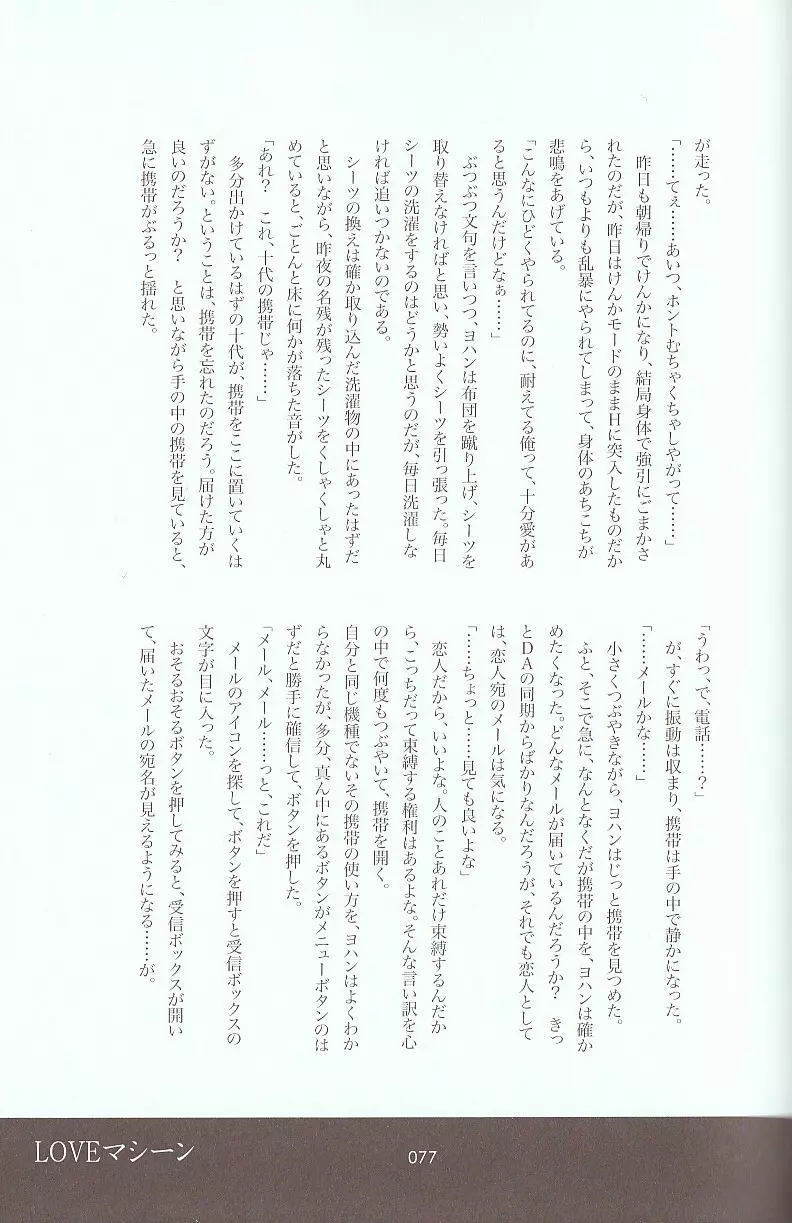 が走った。
「……てぇ……あいつ、ホントむちゃくちゃしやがって……」
昨日も朝帰りでけんかになり、結局身体で強引にごまかさ
れたのだが、昨日はけんかモードのままHに突入したものだか
ら、いつもよりも乱暴にやられてしまって、身体のあちこちが
悲鳴をあげている。
「こんなにひどくやられてるのに、耐えてる俺って、十分愛があ
ると思うんだけどなぁ……」
ぶつぶつ文句を言いつつ、ヨハンは布団を蹴り上げ、シーツを
取り替えなければと思い、勢いよくシーツを引っ張った。毎日
シーツの洗濯をするのはどうかと思うのだが、毎日洗濯しな
ければ追いつかないのである。
シーツの換えは確か取り込んだ洗濯物の中にあったはずだ
と思いながら、昨夜の名残が残ったシーツをくしゃくしゃと丸
めていると、ごとんと床に何かが落ちた音がした。
「あれ？　これ、十代の携帯じゃ……」
多分出かけているはずの十代が、携帯をここに置いていくは
ずがない。ということは、携帯を忘れたのだろう。届けた方が
良いのだろうか？　と思いながら手の中の携帯を見ていると、
急に携帯がぶるっと揺れた。
「うわっ、で、電話……？」
が、すぐに振動は収まり、携帯は手の中で静かになった。
「……メールかな……」
小さくつぶやきながら、ヨハンはじっと携帯を見つめた。
ふと、そこで急に、なんとなくだが携帯の中を、ヨハンは確か
めたくなった。どんなメールが届いているんだろうか？　きっ
とDAの同期からばかりなんだろうが、それでも恋人として
は、恋人宛のメールは気になる。
「……ちょっと……見ても良いよな」
恋人だから、いいよな。人のことあれだけ束縛するんだか
ら、こっちだって束縛する権利はあるよな。そんな言い訳を心
の中で何度もつぶやいて、携帯を開く。
自分と同じ機種でないその携帯の使い方を、ヨハンはよくわか
らなかったが、多分、真ん中にあるボタンがメニューボタンのは
ずだと勝手に確信して、ボタンを押した。
「メール、メール……っと、これだ」
メールのアイコンを探して、ボタンを押すと受信ボックスの
文字が目に入った。
おそるおそるボタンを押してみると、受信ボックスが開い
て、届いたメールの宛名が見えるようになる……が。
LOVEマシーン
077